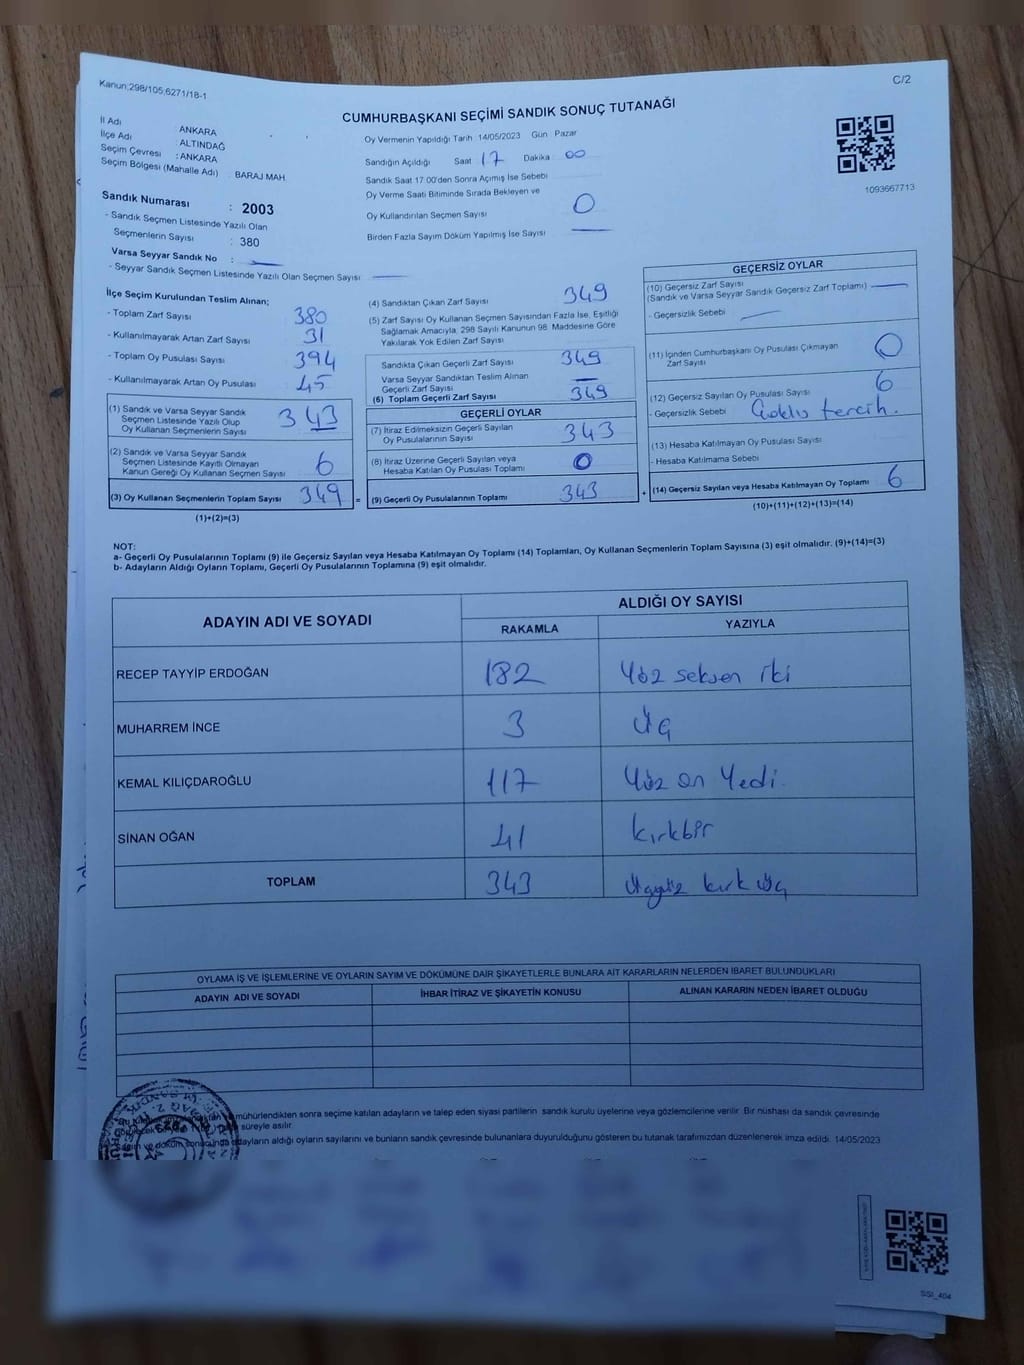 Kanun;298/105,6271/18-1
C/2
CUMHURBAŞKANI SEÇİMİ SANDIK SONUÇ TUTANAĞI
İl Adı : ANKARA
İlçe Adı : ALTINDAĞ
Seçim Çevresi : ANKARA
Seçim Bölgesi (Mahalle Adı) : BARAJ MAH.
Oy Vermenin Yapıldığı Tarih 14/05/2023 Gün Pazar
Sandığın Açıldığı Saat 17 Dakika 00
Sandık Saat 17:00'den Sonra Açımış İse Sebebi
Oy Verme Saati Bitiminde Sırada Bekleyen ve
Oy Kullandırılan Seçmen Sayısı 0
Birden Fazla Sayım Döküm Yapılmış İse Sayısı
1093667713
Sandık Numarası : 2003
- Sandık Seçmen Listesinde Yazılı Olan
Seçmenlerin Sayısı : 380
Varsa Seyyar Sandık No :
- Seyyar Sandık Seçmen Listesinde Yazılı Olan Seçmen Sayısı
İlçe Seçim Kurulundan Teslim Alınan;
- Toplam Zarf Sayısı 380
- Kullanılmayarak Artan Zarf Sayısı 31
- Toplam Oy Pusulası Sayısı 394
- Kullanılmayarak Artan Oy Pusulası 45
(1) Sandık ve Varsa Seyyar Sandık
Seçmen Listesinde Yazılı Olup
Oy Kullanan Seçmenlerin Sayısı 343
(2) Sandık ve Varsa Seyyar Sandık
Seçmen Listesinde Kayıtlı Olmayan
Kanun Gereği Oy Kullanan Seçmen Sayısı 6
(3) Oy Kullanan Seçmenlerin Toplam Sayısı 349 =
(1)+(2)=(3)
(4) Sandıktan Çıkan Zarf Sayısı 349
(5) Zarf Sayısı Oy Kullanan Seçmen Sayısından Fazla İse, Eşitliği
Sağlamak Amacıyla, 298 Sayılı Kanunun 98. Maddesine Göre
Yakılarak Yok Edilen Zarf Sayısı
Sandıkta Çıkan Geçerli Zarf Sayısı 349
Varsa Seyyar Sandıktan Teslim Alınan
Geçerli Zarf Sayısı
(6) Toplam Geçerli Zarf Sayısı 349
GEÇERLİ OYLAR
(7) İtiraz Edilmeksizin Geçerli Sayılan
Oy Pusulalarının Sayısı 343
(8) İtiraz Üzerine Geçerli Sayılan veya
Hesaba Katılan Oy Pusulası Toplamı 0
(9) Geçerli Oy Pusulalarının Toplamı 343 +
GEÇERSİZ OYLAR
(10) Geçersiz Zarf Sayısı
(Sandık ve Varsa Seyyar Sandık Geçersiz Zarf Toplamı)
- Geçersizlik Sebebi
(11) İçinden Cumhurbaşkanı Oy Pusulası Çıkmayan
Zarf Sayısı 0
(12) Geçersiz Sayılan Oy Pusulası Sayısı 6
- Geçersizlik Sebebi Çoklu tercih.
(13) Hesaba Katılmayan Oy Pusulası Sayısı
- Hesaba Katılmama Sebebi
(14) Geçersiz Sayılan veya Hesaba Katılmayan Oy Toplamı 6
(10)+(11)+(12)+(13)=(14)
NOT:
a- Geçerli Oy Pusulalarının Toplamı (9) ile Geçersiz Sayılan veya Hesaba Katılmayan Oy Toplamı (14) Toplamları, Oy Kullanan Seçmenlerin Toplam Sayısına (3) eşit olmalıdır. (9)+(14)=(3)
b- Adayların Aldığı Oyların Toplamı, Geçerli Oy Pusulalarının Toplamına (9) eşit olmalıdır.
ADAYIN ADI VE SOYADI ALDIĞI OY SAYISI
RAKAMLA YAZIYLA
RECEP TAYYİP ERDOĞAN 182 Yüz seksen iki
MUHARREM İNCE 3 Üç
KEMAL KILIÇDAROĞLU 117 Yüz on Yedi.
SİNAN OĞAN 41 kırkbir
TOPLAM 343 Üçyüz kırk üç
OYLAMA İŞ VE İŞLEMLERİNE VE OYLARIN SAYIM VE DÖKÜMÜNE DAİR ŞİKAYETLERLE BUNLARA AİT KARARLARIN NELERDEN İBARET BULUNDUKLARI
ADAYIN ADI VE SOYADI İHBAR İTİRAZ VE ŞİKAYETİN KONUSU ALINAN KARARIN NEDEN İBARET OLDUĞU
mühürlendikten sonra seçime katılan adayların ve talep eden siyasi partilerin sandık kurulu üyelerine veya gözlemcilerine verilir. Bir nüshası da sandık çevresinde
süreyle asılır.
ve döküm sonunda adayların aldığı oyların sayılarını ve bunların sandık çevresinde bulunanlara duyurulduğunu gösteren bu tutanak tarafımızdan düzenlenerek imza edildi. 14/05/2023
SSİ_404